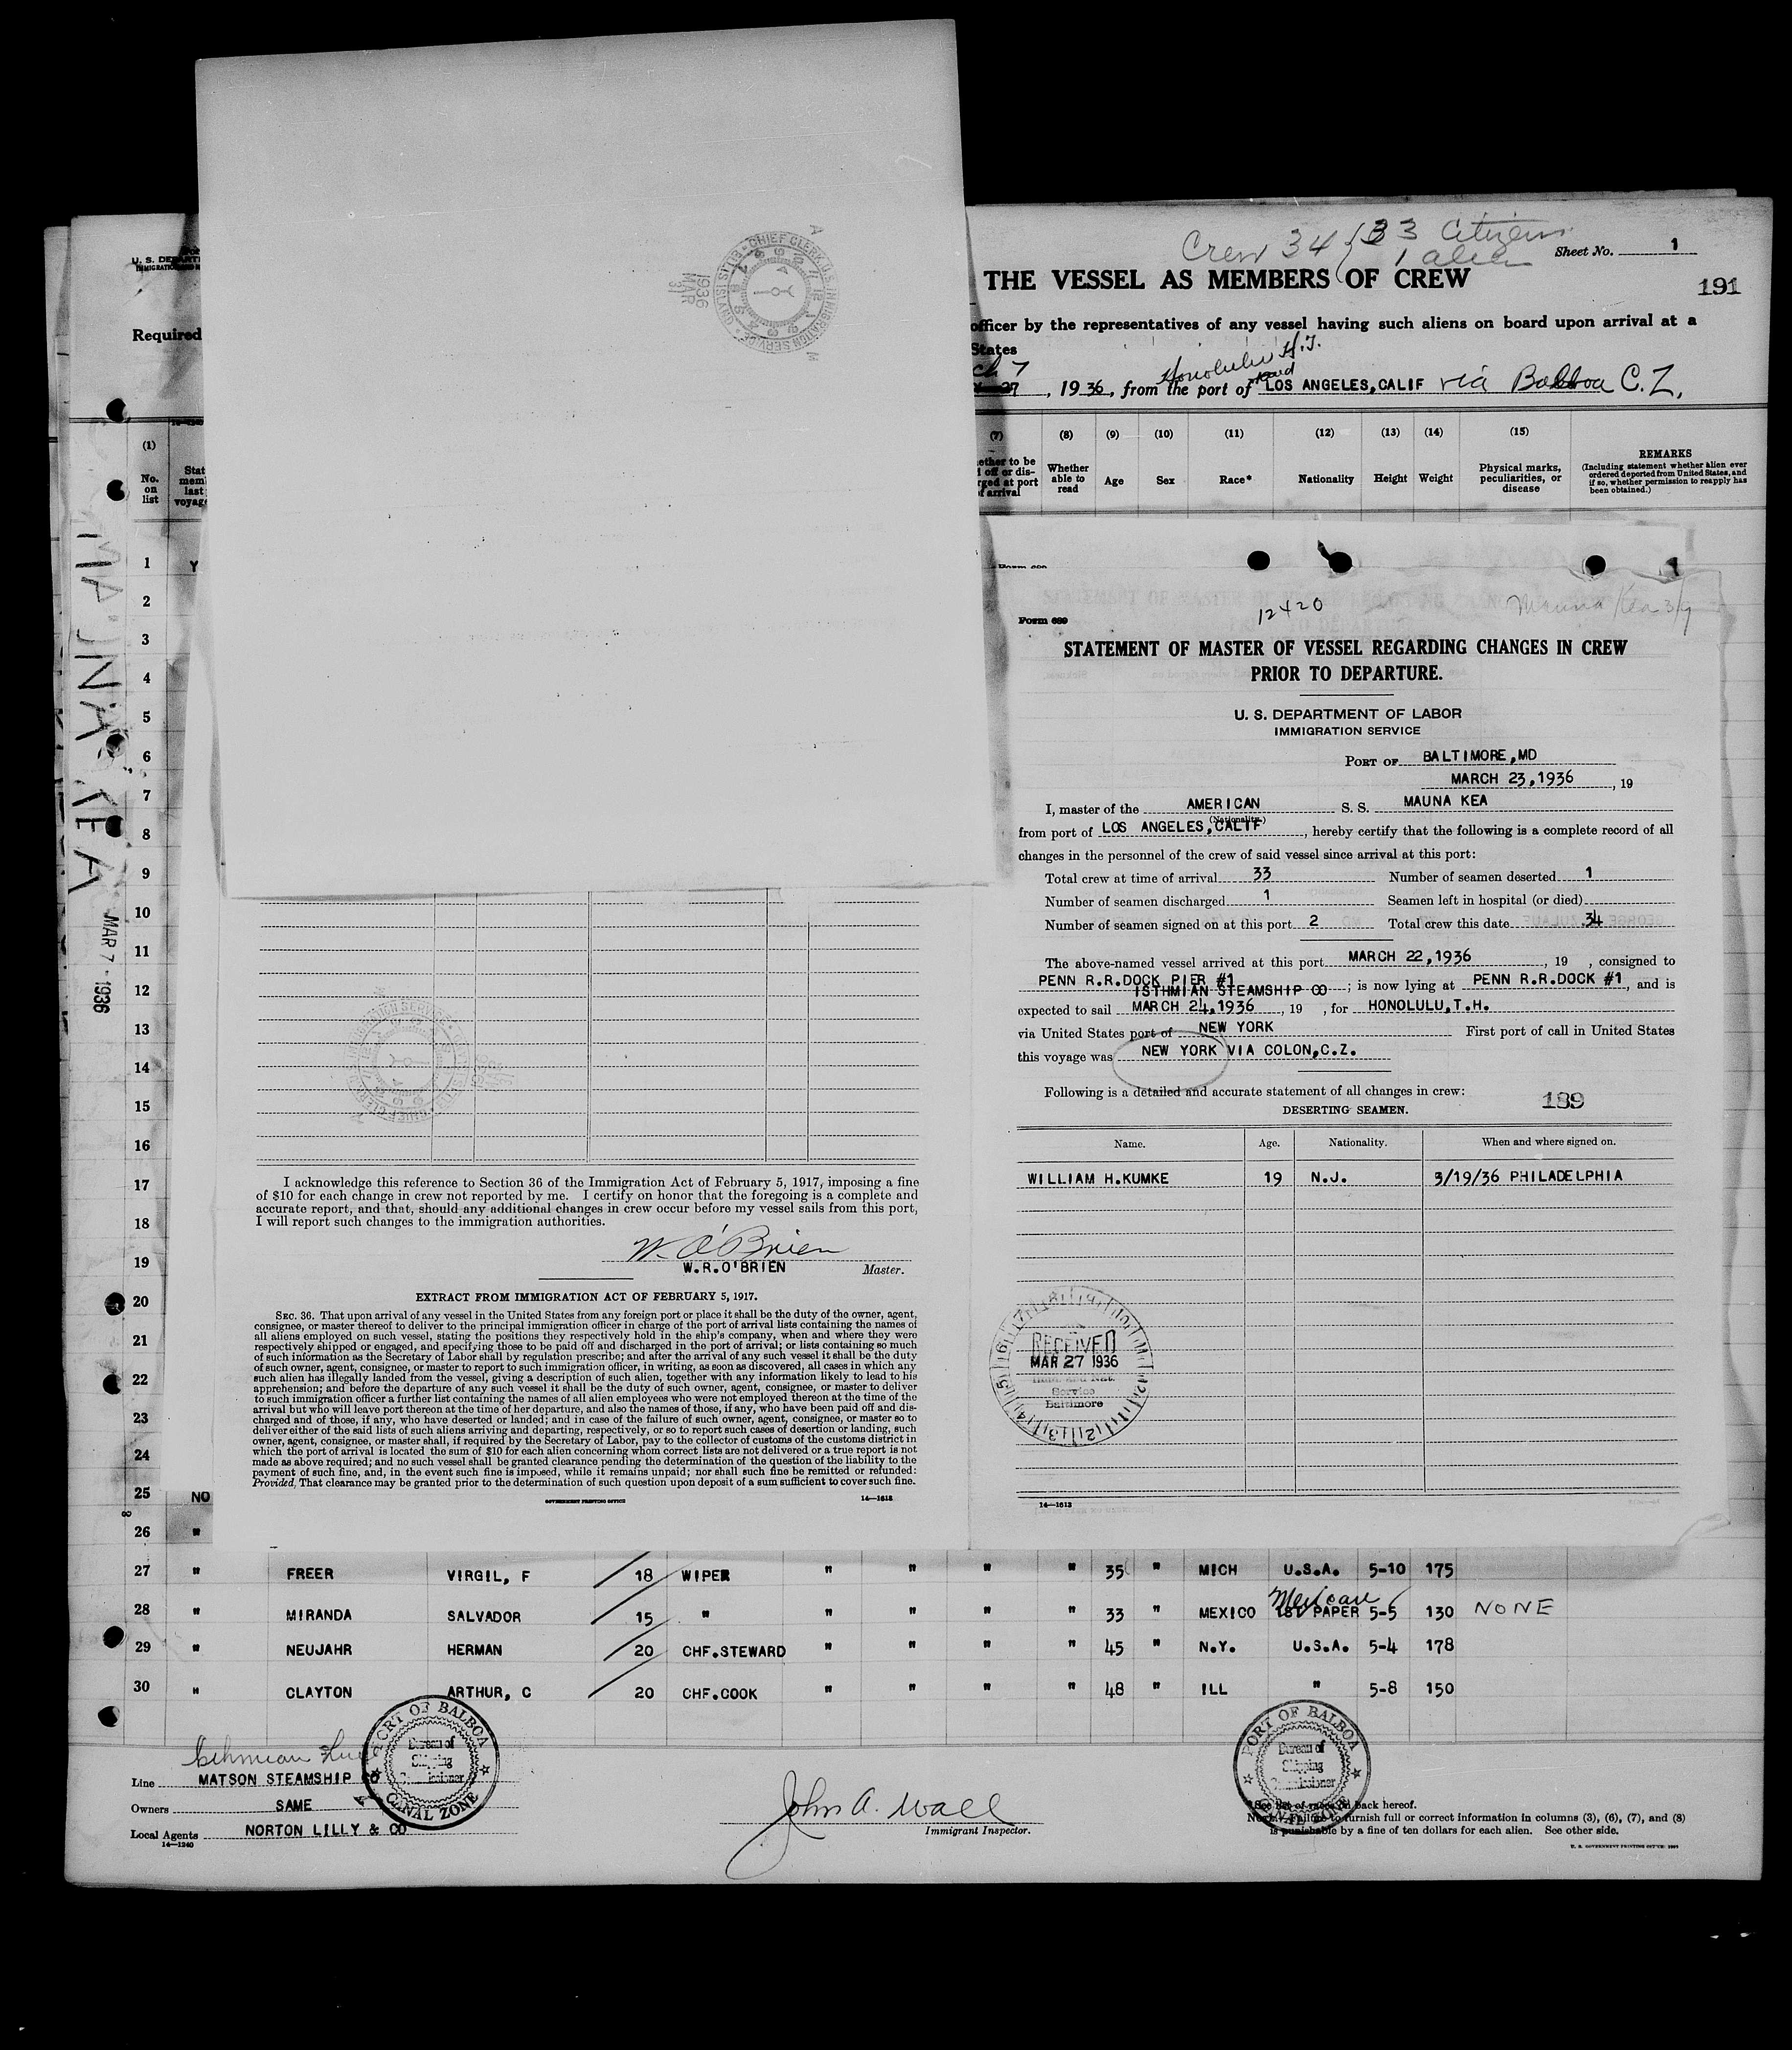 Crew 34 { 33 Citizens
1 alien
Sheet No. 1
THE VESSEL AS MEMBERS OF CREW
191
U. S.
Required
officer by the representatives of any vessel having such aliens on board upon arrival at a
States
Honolulu H.T.
, 1936, from the port of LOS ANGELES,CALIF via Balboa C.Z.
(1) (7) (8) (9) (10) (11) (12) (13) (14) (15)
No. on list
Whether able to read
Age
Sex
Race*
Nationality
Height
Weight
Physical marks, peculiarities, or disease
REMARKS
(Including statement whether alien ever ordered deported from United States, and if so, whether permission to reapply has been obtained.)
MAUNA KEA
MAR 7 - 1936
1 Y
2
3
4
5
6
7
8
9
10
11
12
13
14
15
16
17
18
19
20
21
22
23
24
25 NO
26 "
27 " FREER VIRGIL, F 18 WIPER " " " " 35 " MICH U.S.A. 5-10 175
28 " MIRANDA SALVADOR 15 " " " " " 33 " MEXICO Mexican 1ST PAPER 5-5 130 NONE
29 " NEUJAHR HERMAN 20 CHF.STEWARD " " " " 45 " N.Y. U.S.A. 5-4 178
30 " CLAYTON ARTHUR, C 20 CHF.COOK " " " " 48 " ILL " 5-8 150
Line MATSON STEAMSHIP CO
Owners SAME
Local Agents NORTON LILLY & CO
14—1240
PORT OF BALBOA
Bureau of
Shipping
Commissioner
CANAL ZONE
John A. Wall
Immigrant Inspector.
PORT OF BALBOA
Bureau of
Shipping
Commissioner
CANAL ZONE
* See list of races on back hereof.
NOTE.—Failure to furnish full or correct information in columns (3), (6), (7), and (8)
is punishable by a fine of ten dollars for each alien. See other side.
CHIEF CLERK U.S. IMMIGRATION SERVICE
ELLIS ISLAND
1936
MAR
I acknowledge this reference to Section 36 of the Immigration Act of February 5, 1917, imposing a fine
of $10 for each change in crew not reported by me. I certify on honor that the foregoing is a complete and
accurate report, and that, should any additional changes in crew occur before my vessel sails from this port,
I will report such changes to the immigration authorities.
W. O'Brien
W.R.O'BRIEN Master.
EXTRACT FROM IMMIGRATION ACT OF FEBRUARY 5, 1917.
SEC. 36. That upon arrival of any vessel in the United States from any foreign port or place it shall be the duty of the owner, agent,
consignee, or master thereof to deliver to the principal immigration officer in charge of the port of arrival lists containing the names of
all aliens employed on such vessel, stating the positions they respectively hold in the ship's company, when and where they were
respectively shipped or engaged, and specifying those to be paid off and discharged in the port of arrival; or lists containing so much
of such information as the Secretary of Labor shall by regulation prescribe; and after the arrival of any such vessel it shall be the duty
of such owner, agent, consignee, or master to report to such immigration officer, in writing, as soon as discovered, all cases in which any
such alien has illegally landed from the vessel, giving a description of such alien, together with any information likely to lead to his
apprehension; and before the departure of any such vessel it shall be the duty of such owner, agent, consignee, or master to deliver
to such immigration officer a further list containing the names of all alien employees who were not employed thereon at the time of the
arrival but who will leave port thereon at the time of her departure, and also the names of those, if any, who have been paid off and dis-
charged and of those, if any, who have deserted or landed; and in case of the failure of such owner, agent, consignee, or master so to
deliver either of the said lists of such aliens arriving and departing, respectively, or so to report such cases of desertion or landing, such
owner, agent, consignee, or master shall, if required by the Secretary of Labor, pay to the collector of customs of the customs district in
which the port of arrival is located the sum of $10 for each alien concerning whom correct lists are not delivered or a true report is not
made as above required; and no such vessel shall be granted clearance pending the determination of the question of the liability to the
payment of such fine, and, in the event such fine is imposed, while it remains unpaid; nor shall such fine be remitted or refunded:
Provided, That clearance may be granted prior to the determination of such question upon deposit of a sum sufficient to cover such fine.
GOVERNMENT PRINTING OFFICE 14—1613
Form 689
12420
Mauna Kea 3/9
STATEMENT OF MASTER OF VESSEL REGARDING CHANGES IN CREW
PRIOR TO DEPARTURE.
U. S. DEPARTMENT OF LABOR
IMMIGRATION SERVICE
PORT OF BALTIMORE,MD
MARCH 23,1936, 19
I, master of the AMERICAN S. S. MAUNA KEA
(Nationality)
from port of LOS ANGELES,CALIF, hereby certify that the following is a complete record of all
changes in the personnel of the crew of said vessel since arrival at this port:
Total crew at time of arrival 33 Number of seamen deserted 1
Number of seamen discharged 1 Seamen left in hospital (or died)
Number of seamen signed on at this port 2 Total crew this date 34
The above-named vessel arrived at this port MARCH 22,1936, 19 , consigned to
PENN R.R.DOCK PIER #1
ISTHMIAN STEAMSHIP CO ; is now lying at PENN R.R.DOCK #1, and is
expected to sail MARCH 24,1936, 19 , for HONOLULU,T.H.
via United States port of NEW YORK First port of call in United States
this voyage was NEW YORK VIA COLON,C.Z.
Following is a detailed and accurate statement of all changes in crew:
189
DESERTING SEAMEN.
Name. Age. Nationality. When and where signed on.
WILLIAM H.KUMKE 19 N.J. 3/19/36 PHILADELPHIA
RECEIVED
MAR 27 1936
Immi. and Nat.
Service
Baltimore
14—1613